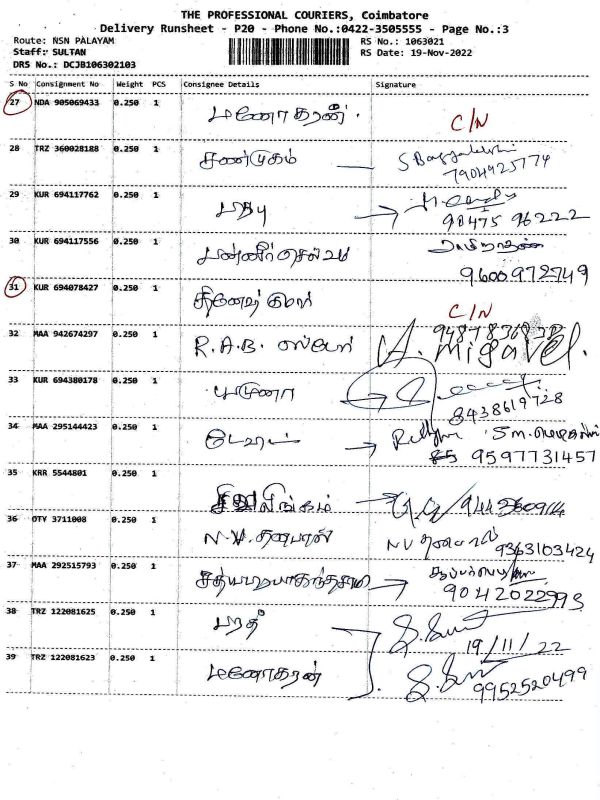 THE PROFESSIONAL COURIERS, Coimbatore
Delivery Runsheet - P20 - Phone No.:0422-3505555 - Page No.:3
Route: NSN PALAYAM RS No.: 1063021
Staff: SULTAN RS Date: 19-Nov-2022
DRS No.: DCJB106302103
S No Consignment No Weight PCS Consignee Details Signature
27 NDA 905069433 0.250 1 மனோகரன். C/N
28 TRZ 360028188 0.250 1 சண்முகம்
7904925774
29 KUR 694117762 0.250 1 மது
98475 96222
30 KUR 694117556 0.250 1 பன்னீர் செல்வம்
9600972749
31 KUR 694078427 0.250 1 தினேஷ் குமார் C/N
32 MAA 942674297 0.250 1 R.A.B. ஸ்டோர் A. migavel.
33 KUR 694380178 0.250 1 யமுனா
8438619728
34 MAA 295144423 0.250 1
9597731457
35 KRR 5544801 0.250 1 சிவலிங்கம்
36 OTY 3711008 0.250 1 N.V. தனபால் NV தனபால்
9363103424
37 MAA 292515793 0.250 1
9042022993
38 TRZ 122081625 0.250 1 பரத்
19/11/22
39 TRZ 122081623 0.250 1 மனோகரன்
9952520499